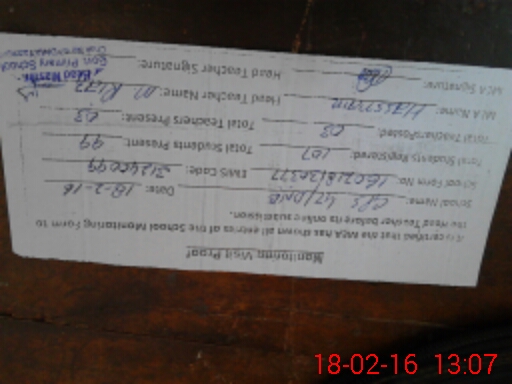 Monitoring Visit Proof
It is certified that the MEA has shown all entries of the School Monitoring Form to
the Head Teacher before its online submission.
School Name: GPS 47/DNB Date: 18-2-16
School Form No: EMIS Code:
Total Students Registered: 107 Total Students Present: 99
Total Teachers Posted: 03 Total Teachers Present: 03
MEA Name: Head Teacher Name: M. Riaz
MEA Signature: Head Teacher Signature:
Head Master
Primary School
18-02-16 13:07